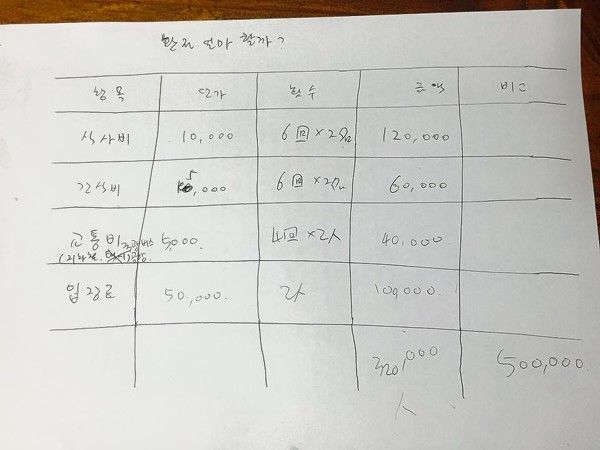 환전 얼마 할까?
항목 단가 횟수 금액 비고
식사비 10,000 6回×2人 120,000
간식비 5,000 6回×2人 60,000
교통비 5,000. 4回×2人 40,000
(지하철,
입장료 50,000. 2人 100,000.
320,000 500,000.